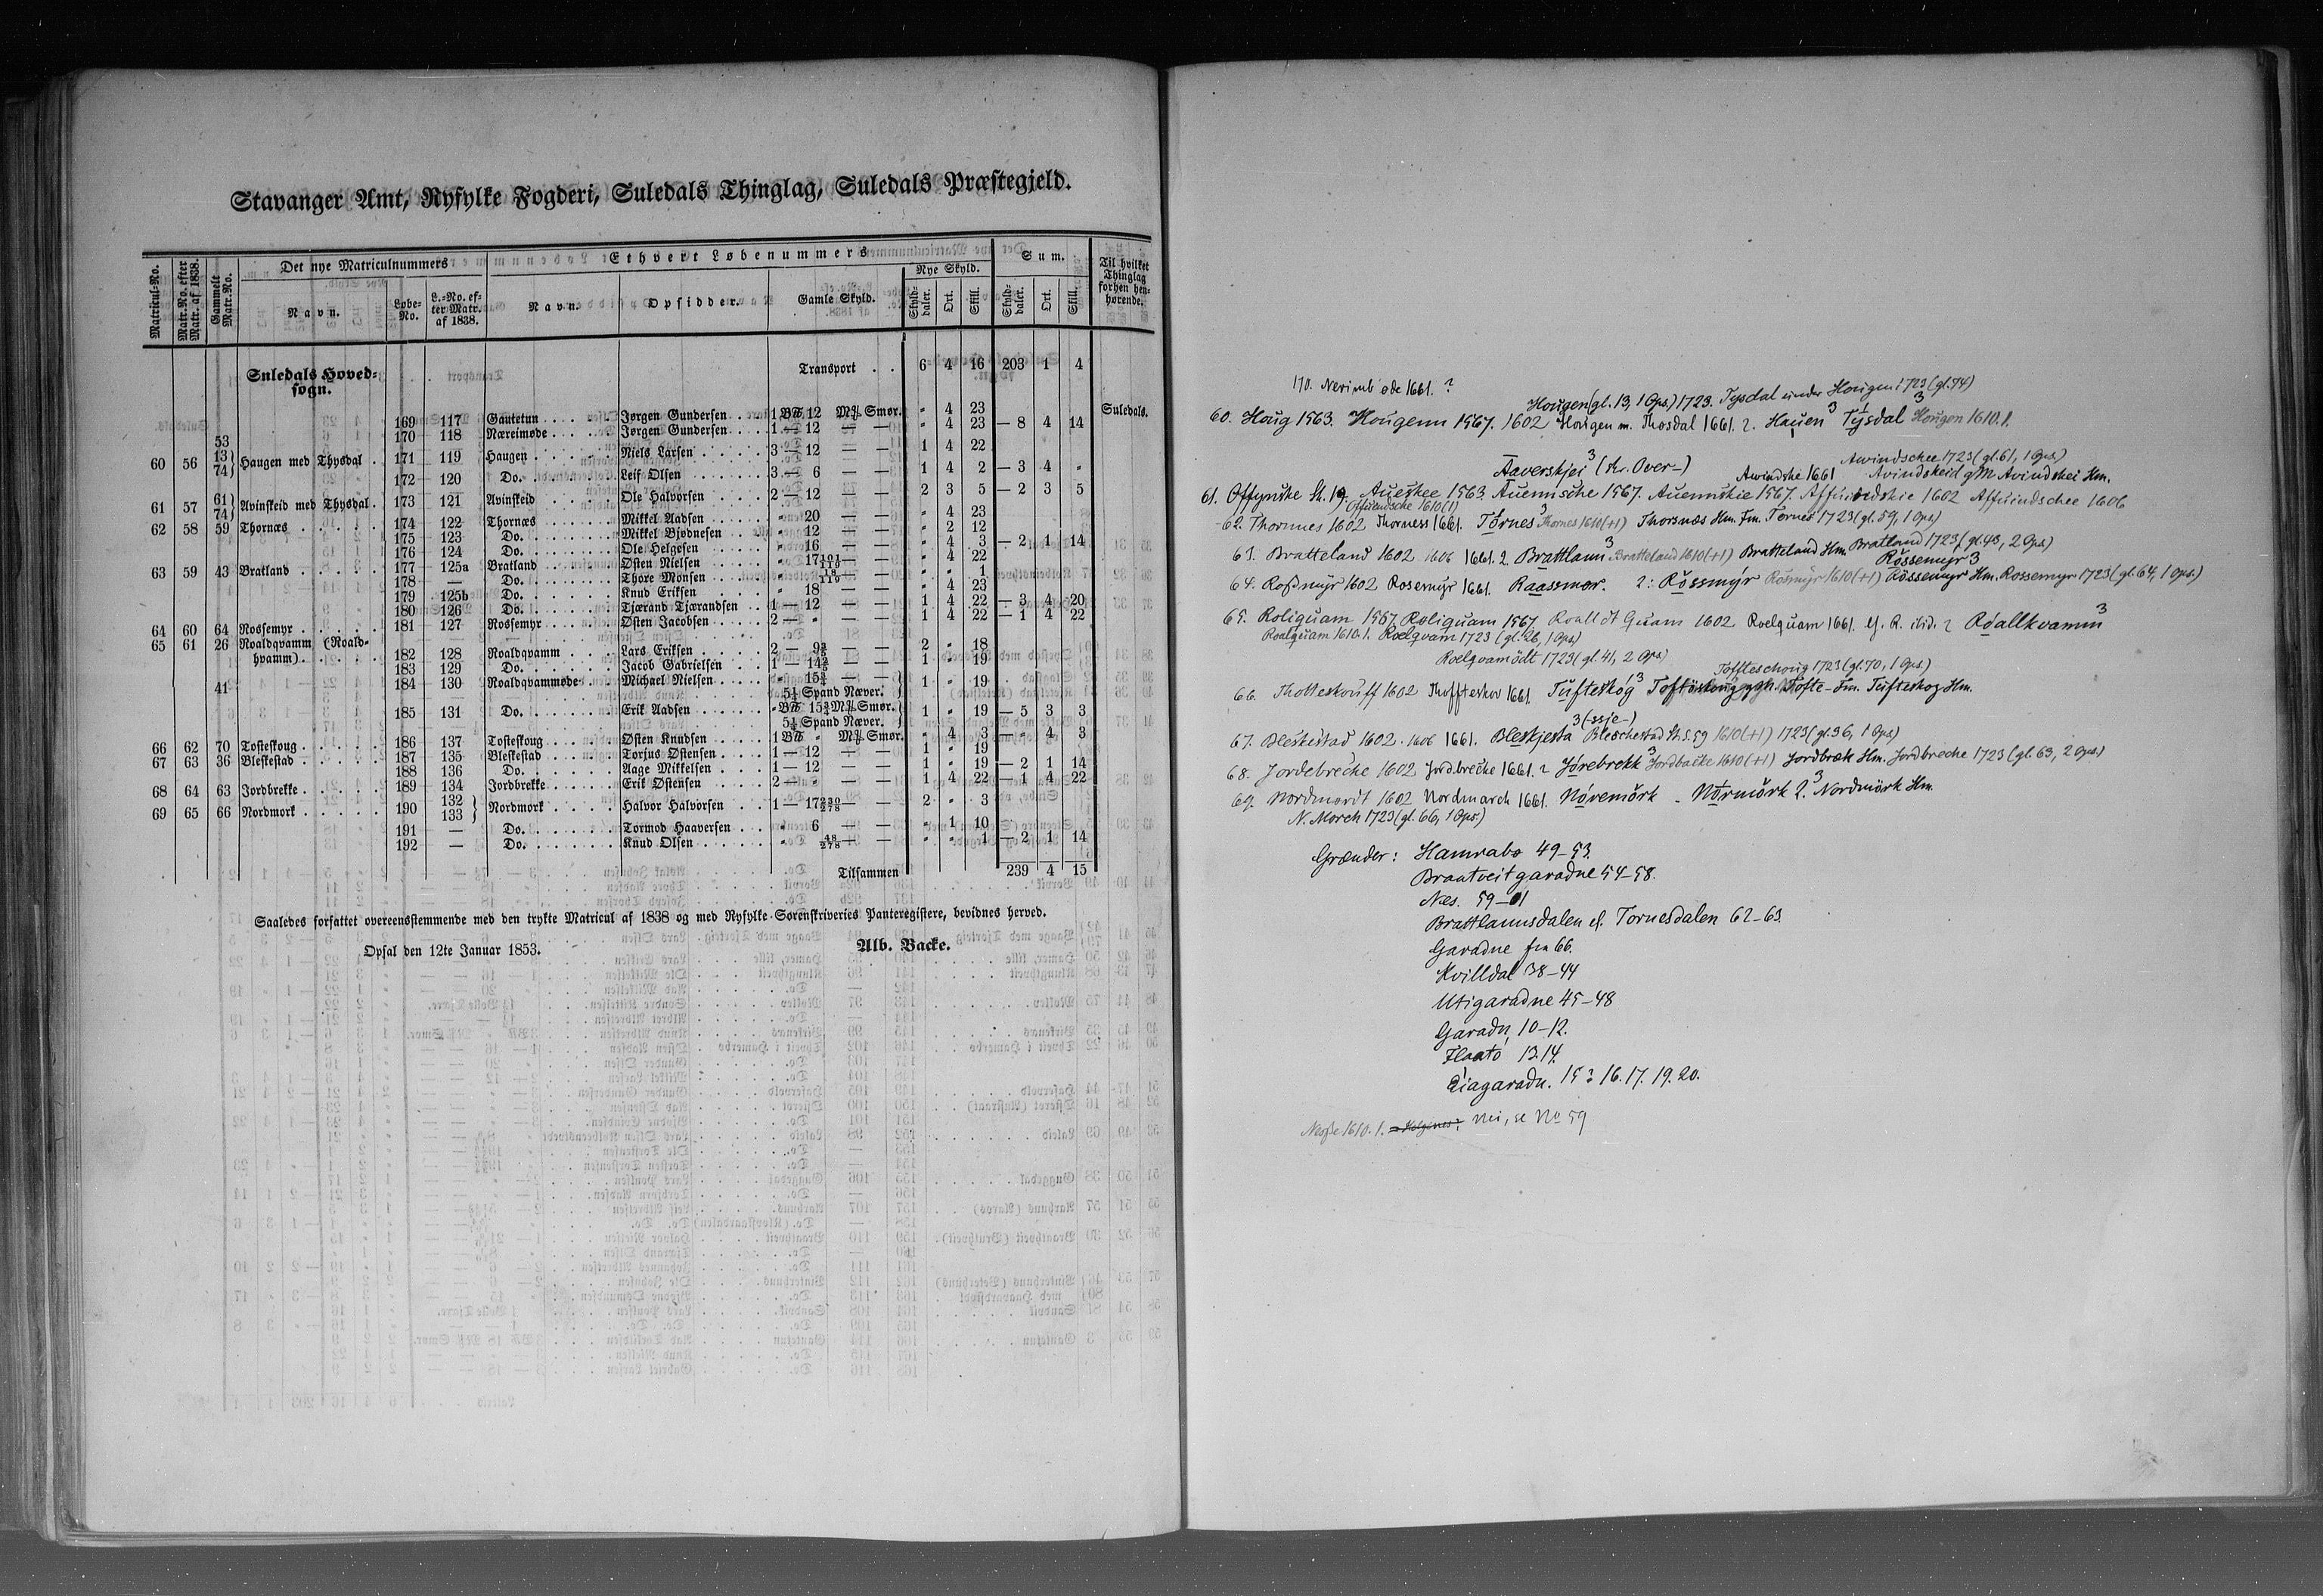 Stavanger Amt, Ryfylke Fogderi, Suledals Thinglag, Suledals Præstegjeld.
Matricul-No. Matr.No. efter Matr. af 1838. Gammelt Matr.No. Det nye Matriculnummers Ethvert Løbenummers Sum. Til hvilket Thinglag forhen henhørende.
Navn. Løbe-No. L.-No. efter Matr. af 1838. Navn. Opsidder. Gamle Skyld. Nye Skyld. Skylddaler. Ort. Skill. Skylddaler. Ort. Skill.
Suledals Hovedsogn. Transport . . 6 4 16 203 1 4
169 117 Gautetun . . . Jørgen Gundersen . . 1 B℔ 12 M℔ Smør. " 4 23 Suledals.
53 170 118 Næreimøde . . . Jørgen Gundersen . . 1 — 12 — — " 4 23 — 8 4 14
60 56 13 74 } Haugen med Thysdal . 171 119 Haugen . . . Niels Larsen . . . 3 — 12 — — 1 4 22
172 120 Do. . . . Leif Olsen . . . 3 — 6 — — 1 4 2 — 3 4 "
61 57 61 74 } Avinskeid med Thysdal . 173 121 Avinskeid . . . Ole Halvorsen . . . 2 — 12 — — 2 3 5 — 2 3 5
62 58 59 Thornæs . . . 174 122 Thornæs . . . Mikkel Aadsen . . . " 20 — — " 4 23
175 123 Do. . . . Mikkel Bjødnesen . . " 12 — — " 2 12
176 124 Do. . . . Ole Helgesen . . . " 16 — — " 4 3 — 2 1 14
63 59 43 Bratland . . . 177 125a Bratland . . . Østen Nielsen . . . " 17 101/119 — — " 4 22
178 — Do. . . . Thore Monsen . . . " 18/119 — — " " 1
179 125b Do. . . . Knud Eriksen . . . " 18 — — " 4 23
180 126 Do. . . . Tjærand Tjærandsen . . 1 — 12 — — 1 4 22 — 3 4 20
64 60 64 Rossemyr . . . 181 127 Rossemyr . . . Østen Jacobsen . . . 2 — " — — 1 4 22 — 1 4 22
65 61 26 Roaldqvamm (Roaldhvamm) . . . 182 128 Roaldqvamm . . . Lars Eriksen . . . 2 — 9 3/5 — — 2 " 18
183 129 Do. . . . Jacob Gabrielsen . . . 1 — 14 2/5 — — 1 " 19
41 184 130 Roaldqvammsøde . . Michael Nielsen . . . " 15 3/4 — — 5 1/4 Spand Næver. } 1 " 19
185 131 Do. . . . Erik Aadsen . . . " B℔ 15 3/4 M℔ Smør. 5 1/4 Spand Næver. } 1 " 19 — 5 3 3
66 62 70 Tofteskoug . . . 186 137 Tofteskoug . . . Østen Knudsen . . . 1 B℔ " M℔ Smør. " 4 3 — " 4 3
67 63 36 Bleskestad . . . 187 135 Bleskestad . . . Torjus Østensen . . . 1 — 12 — — 1 " 19
188 136 Do. . . . Aage Mikkelsen . . . 1 — 12 — — 1 " 19 — 2 1 14
68 64 63 Jordbrekke . . . 189 134 Jordbrekke . . . Erik Østensen . . . 2 — " — — 1 4 22 — 1 4 22
69 65 66 Nordmork . . . 190 132 133 } Nordmork . . . Halvor Halvorsen . . . 1 — 17 230/278 — — 2 " 3
191 — Do. . . . Tormod Haaversen . . . " 6 — — " 1 10
192 — Do. . . . Knud Olsen . . . " 48/278 — — " " 1 — 2 1 14
Tilsammen 239 4 15
Saaledes forfattet overeensstemmende med den trykte Matricul af 1838 og med Ryfylke Sorenskriveries Panteregistere, bevidnes herved.
Opsal den 12te Januar 1853. Alb. Backe.
170. Nerimb øde 1661. ?
Hougen (gl. 13, 1 Ops.) 1723. Tysdal under Hougen 1723 (gl. 74)
60. Houg 1563. Hougenn 1567. 1602 Hougen m. Thosdal 1661. 2. Hauen 3 Tysdal 3 Hougen 1610.1.
Awindschee 1723 (gl. 61, 1 Ops.)
Aaverskjei 3 (Av. Over-) Awindske 1661 Avindskeid gM. Avindskei Hm.
61. Offynske St. 19. Aueskee 1563 Auennsche 1567. Auennskie 1567. Affuindskie 1602 Affuindschee 1606
Offuindsche 1610 (1)
62. Thornnes 1602 Thorness 1661. Tornes 3 Thornes 1610 (+1) Thorsnæs Hm. Fm. Tornes 1723 (gl. 59, 1 Ops)
63. Bratteland 1602 1606 1661. 2 Brattlann 3 Bratteland 1610 (+1) Bratteland Hm. Bratland 1723 (gl. 43, 2 Ops)
Rössemyr 3
64. Rosmyr 1602 Rosemyr 1661. Raasmor. 2: Rössmyr Rosmyr 1610 (+1) Rössemyr Hm. Rossemyr 1723 (gl. 64, 1 Ops.)
65. Roliquam 1567. Roliquam 1567. Roalldt Quam 1602 Roelquam 1661. Ø. R. ibid. 2 Roallkvamm 3
Roalquam 1610.1. Roelqvam 1723 (gl. 26, 1 Ops)
Roelqvamödt 1723 (gl. 41, 2 Ops)
Toffleschoug 1723 (gl. 70, 1 Ops.)
66. Thotteskouff 1602 Thoffteskov 1661. Tufteskog 3 Tofteskoug Tofte- Fm. Tufteskog Hm.
3 (-ssje-)
67. Bleskestad 1602. 1606 1661. Bleskjesta Bleschestad St. S. 59 1610 (+1) 1723 (gl. 36, 1 Ops)
68. Jordebrecke 1602 Jordbrecke 1661. 2 Jorebrekk 3 Jordbacke 1610 (+1) Jordbræk Hm. Jordbreche 1723 (gl. 63, 2 Ops.)
69. Nordmordt 1602 Nordmarch 1661. Noremork - Normork 2. 3 Nordmörk Hm.
N. Morch 1723 (gl. 66, 1 Ops.)
Grænder: Hamrabø 49-53.
Braatveit garadne 54-58.
Nes. 59-61
Brattlannsdalen el. Tornesdalen 62-63.
Garadne fra 66.
Kvilldal 38-44
Utigaradne 45-48
Garadn, 10-12.
Flaato 13.14.
Eiagaradn. 15? 16. 17. 19. 20.
1610. 1. nei, se No 59